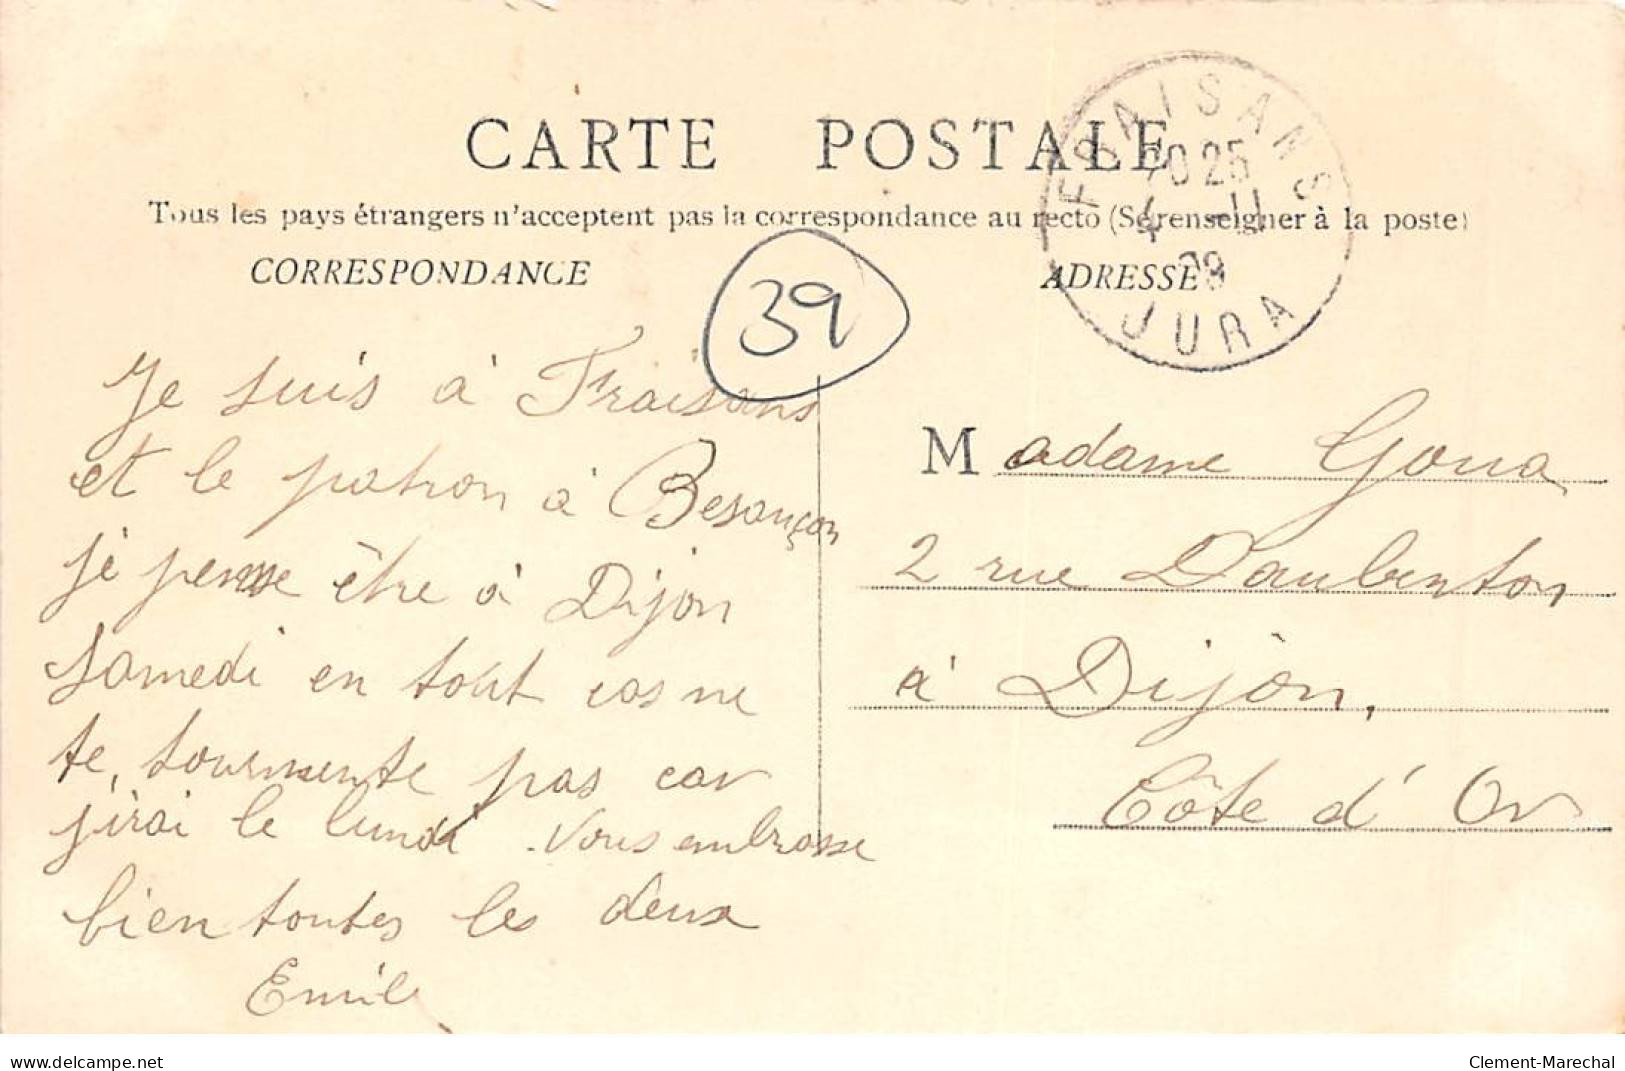 CARTE POSTALE
Tous les pays étrangers n'acceptent pas la correspondance au recto (Se renseigner à la poste)
CORRESPONDANCE
ADRESSE
FRAISANS
20 25
4 -11
09
JURA
39
Je suis à Fraisans
et le patron à Besançon
je pense être à Dijon
samedi en tout cas ne
te tourmente pas car
j'irai le lundi. Vous embrasse
bien toutes les deux
Emile
Madame Goua
2 rue Daubenton
à Dijon,
Côte d'Or
delcampe.net
Clement-Marechal